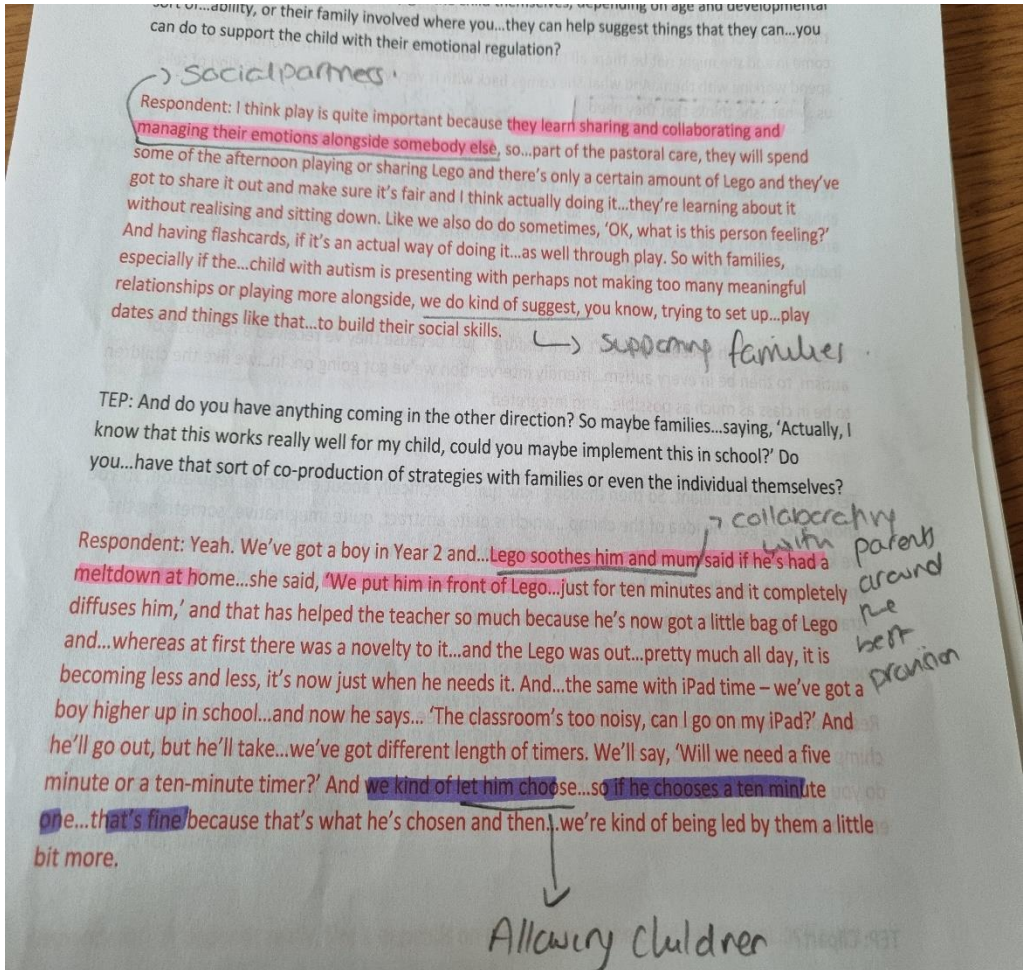 can do to support the child with their emotional regulation?
social partners.
Respondent: I think play is quite important because they learn sharing and collaborating and
managing their emotions alongside somebody else, so...part of the pastoral care, they will spend
some of the afternoon playing or sharing Lego and there's only a certain amount of Lego and they've
got to share it out and make sure it's fair and I think actually doing it...they're learning about it
without realising and sitting down. Like we also do do sometimes, 'OK, what is this person feeling?'
And having flashcards, if it's an actual way of doing it...as well through play. So with families,
especially if the...child with autism is presenting with perhaps not making too many meaningful
relationships or playing more alongside, we do kind of suggest, you know, trying to set up...play
dates and things like that...to build their social skills.
supporting families.
TEP: And do you have anything coming in the other direction? So maybe families...saying, 'Actually, I
know that this works really well for my child, could you maybe implement this in school?' Do
you...have that sort of co-production of strategies with families or even the individual themselves?
collaborating
with parents
around
the
best
provision
Respondent: Yeah. We've got a boy in Year 2 and...Lego soothes him and mum said if he's had a
meltdown at home...she said, 'We put him in front of Lego...just for ten minutes and it completely
diffuses him,' and that has helped the teacher so much because he's now got a little bag of Lego
and...whereas at first there was a novelty to it...and the Lego was out...pretty much all day, it is
becoming less and less, it's now just when he needs it. And...the same with iPad time – we've got a
boy higher up in school...and now he says... 'The classroom's too noisy, can I go on my iPad?' And
he'll go out, but he'll take...we've got different length of timers. We'll say, 'Will we need a five
minute or a ten-minute timer?' And we kind of let him choose...so if he chooses a ten minute
one...that's fine because that's what he's chosen and then...we're kind of being led by them a little
bit more.
Allowing Children